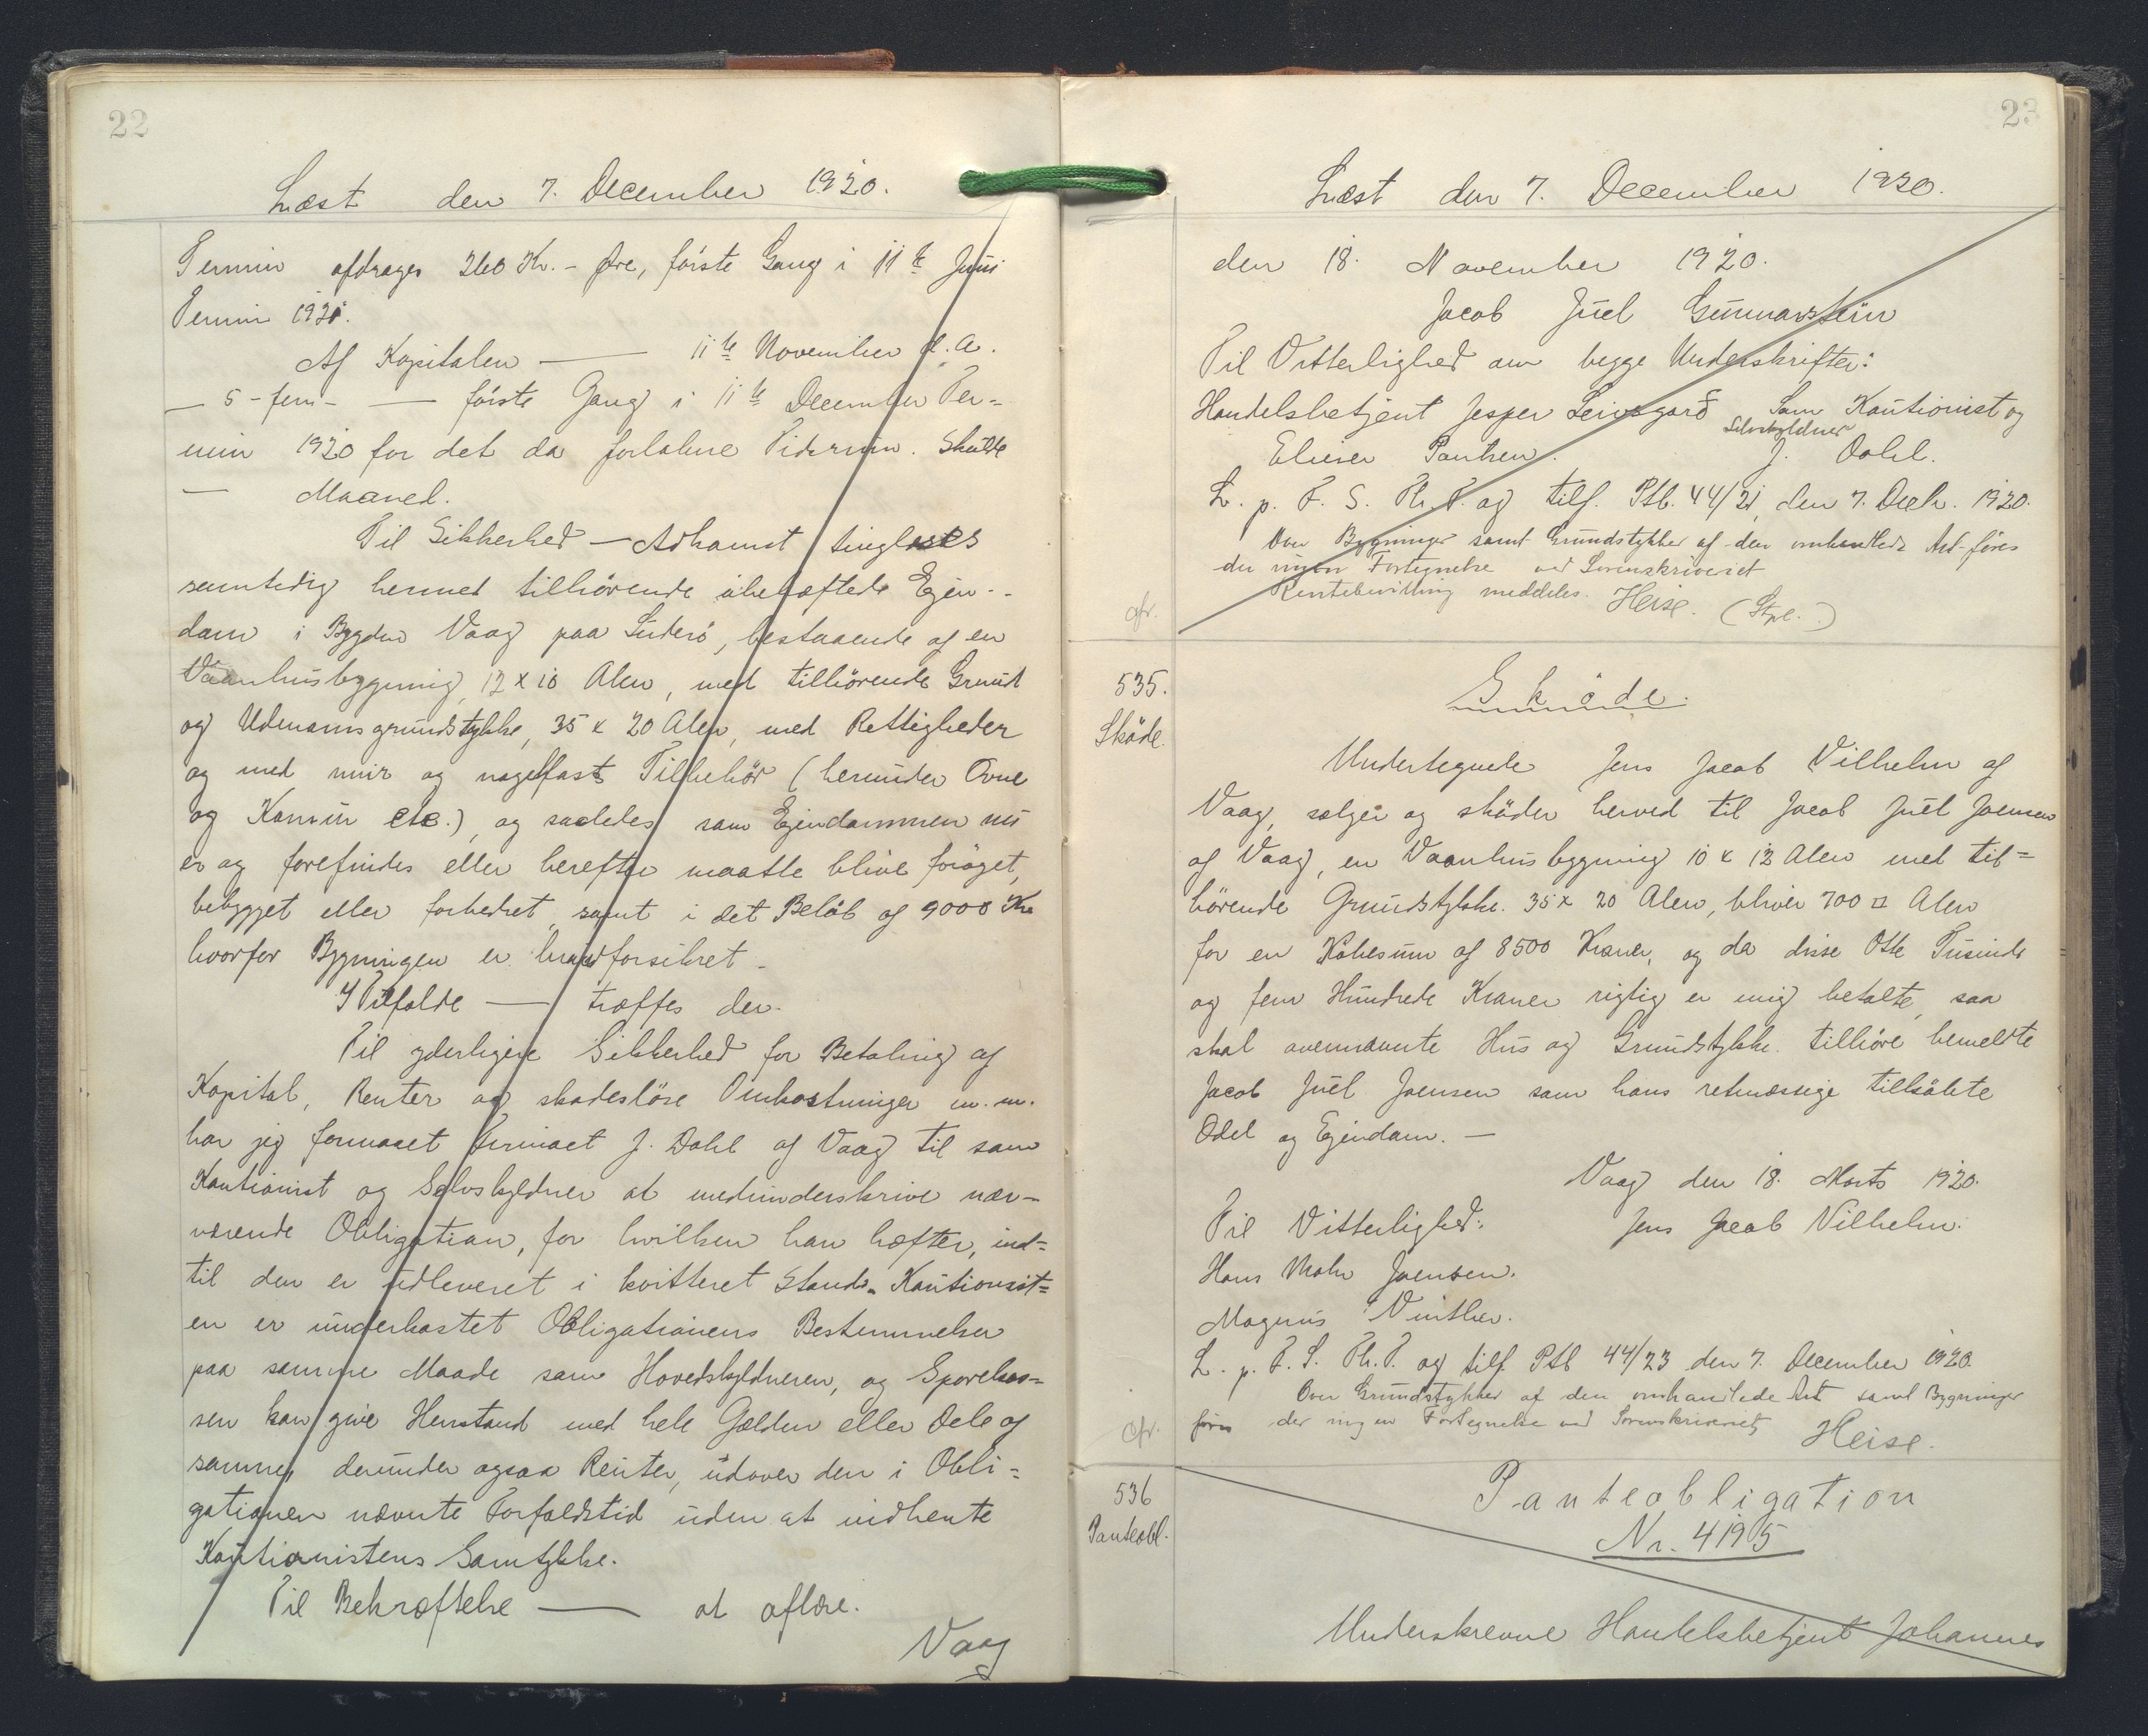 22
Læst den 7. December 1920.
Termin afdrages 260 Kr. - Øre, første Gang i 11te Juni
Termin 1921.
Af Kapitalen — 11te November d. A.
— 5 - fem - — første Gang i 11te December Ter=
min 1920 for det da forløbne Tidsrum. Skulde
— Maaned.
Til Sikkerhed — Adkomst tinglæses
samtidig hermed tilhørende ubehæftede Ejen-
dom i Bygden Vaag paa Suderø, bestaaende af en
Vaanhusbygning, 12 x 10 Alen, med tilhørende Grund
og Udmarksgrundstykke, 35 x 20 Alen, med Rettigheder
og med mur og nagelfast Tilbehør (herunder Ovne
og Komfur etc.), og saaledes som Ejendommen nu
er og forefindes eller herefter maatte blive forøget,
bebygget eller forbedret, samt i det Beløb af 9000 Kr
hvorfor Bygningen er brandforsikret.
I Tilfælde — træffes der.
Til yderligere Sikkerhed for Betaling af
Kapital, Renter og skadesløse Omkostninger m. m.
har jeg formaaet Firmaet J. Dahl af Vaag til som
Kautionist og Selvskyldner at medunderskrive nær-
værende Obligation, for hvilken han hæfter, ind=
til den er udleveret i kvitteret Stand. Kautionist=
en er underkastet Obligationens Bestemmelser
paa samme Maade som Hovedskyldneren, og Sparekas=
sen kan give Henstand med hele Gælden eller Dele af
samme, derunder ogsaa Renter, udover den i Obli=
gationen nævnte Forfaldstid uden at indhente
Kautionistens Samtykke.
Til Bekræftelse — at aflæse.
Vaag
23
Læst den 7. December 1920.
den 18. November 1920.
Jacob Juel Gunnarstein
Til Vitterlighed om begge Underskrifter:
Handelsbetjent Jesper Leivsgarð Som Kautionist og
Selvskyldner
Elieser Poulsen. J. Dahl.
L. p. F. S. Th. T. og tilf. Ptb. 44/21, den 7. Decb. 1920.
Over Bygninger samt Grundstykker af den omhandlede Art føres
der ingen Fortegnelse ved Sorenskriveriet
Rentebevilling meddeles. Heise. (Stpl.)
cfr.
535.
Skøde.
Skøde.
Undertegnede Jens Jacob Vilhelm af
Vaag, sælger og skøder herved til Jacob Juel Joensen
af Vaag, en Vaanhusbygning 10 x 12 Alen med til=
hørende Grundstykke. 35 x 20 Alen, bliver 700 □ Alen
for en Købesum af 8500 Kroner, og da disse Otte Tusinde
og fem Hundrede Kroner rigtig er mig betalte, saa
skal ovennævnte Hus og Grundstykke. tilhøre bemeldte
Jacob Juel Joensen som hans retmæssige tilkøbte
Odel og Ejendom. —
Vaag den 18. Marts 1920.
Til Vitterlighed: Jens Jacob Vilhelm.
Hans Mohr Joensen.
Magnus Vinther.
L. p. F. S. Th. T. og tilf. Ptb 44/23 den 7. December 1920.
Over Grundstykker af den omhandlede Art samt Bygninger
føres der ingen Fortegnelse ved Sorenskriveriet
Heise.
cfr.
536
Panteobl.
Panteobligation
Nr. 4195
Underskrevne Handelsbetjent Johannes